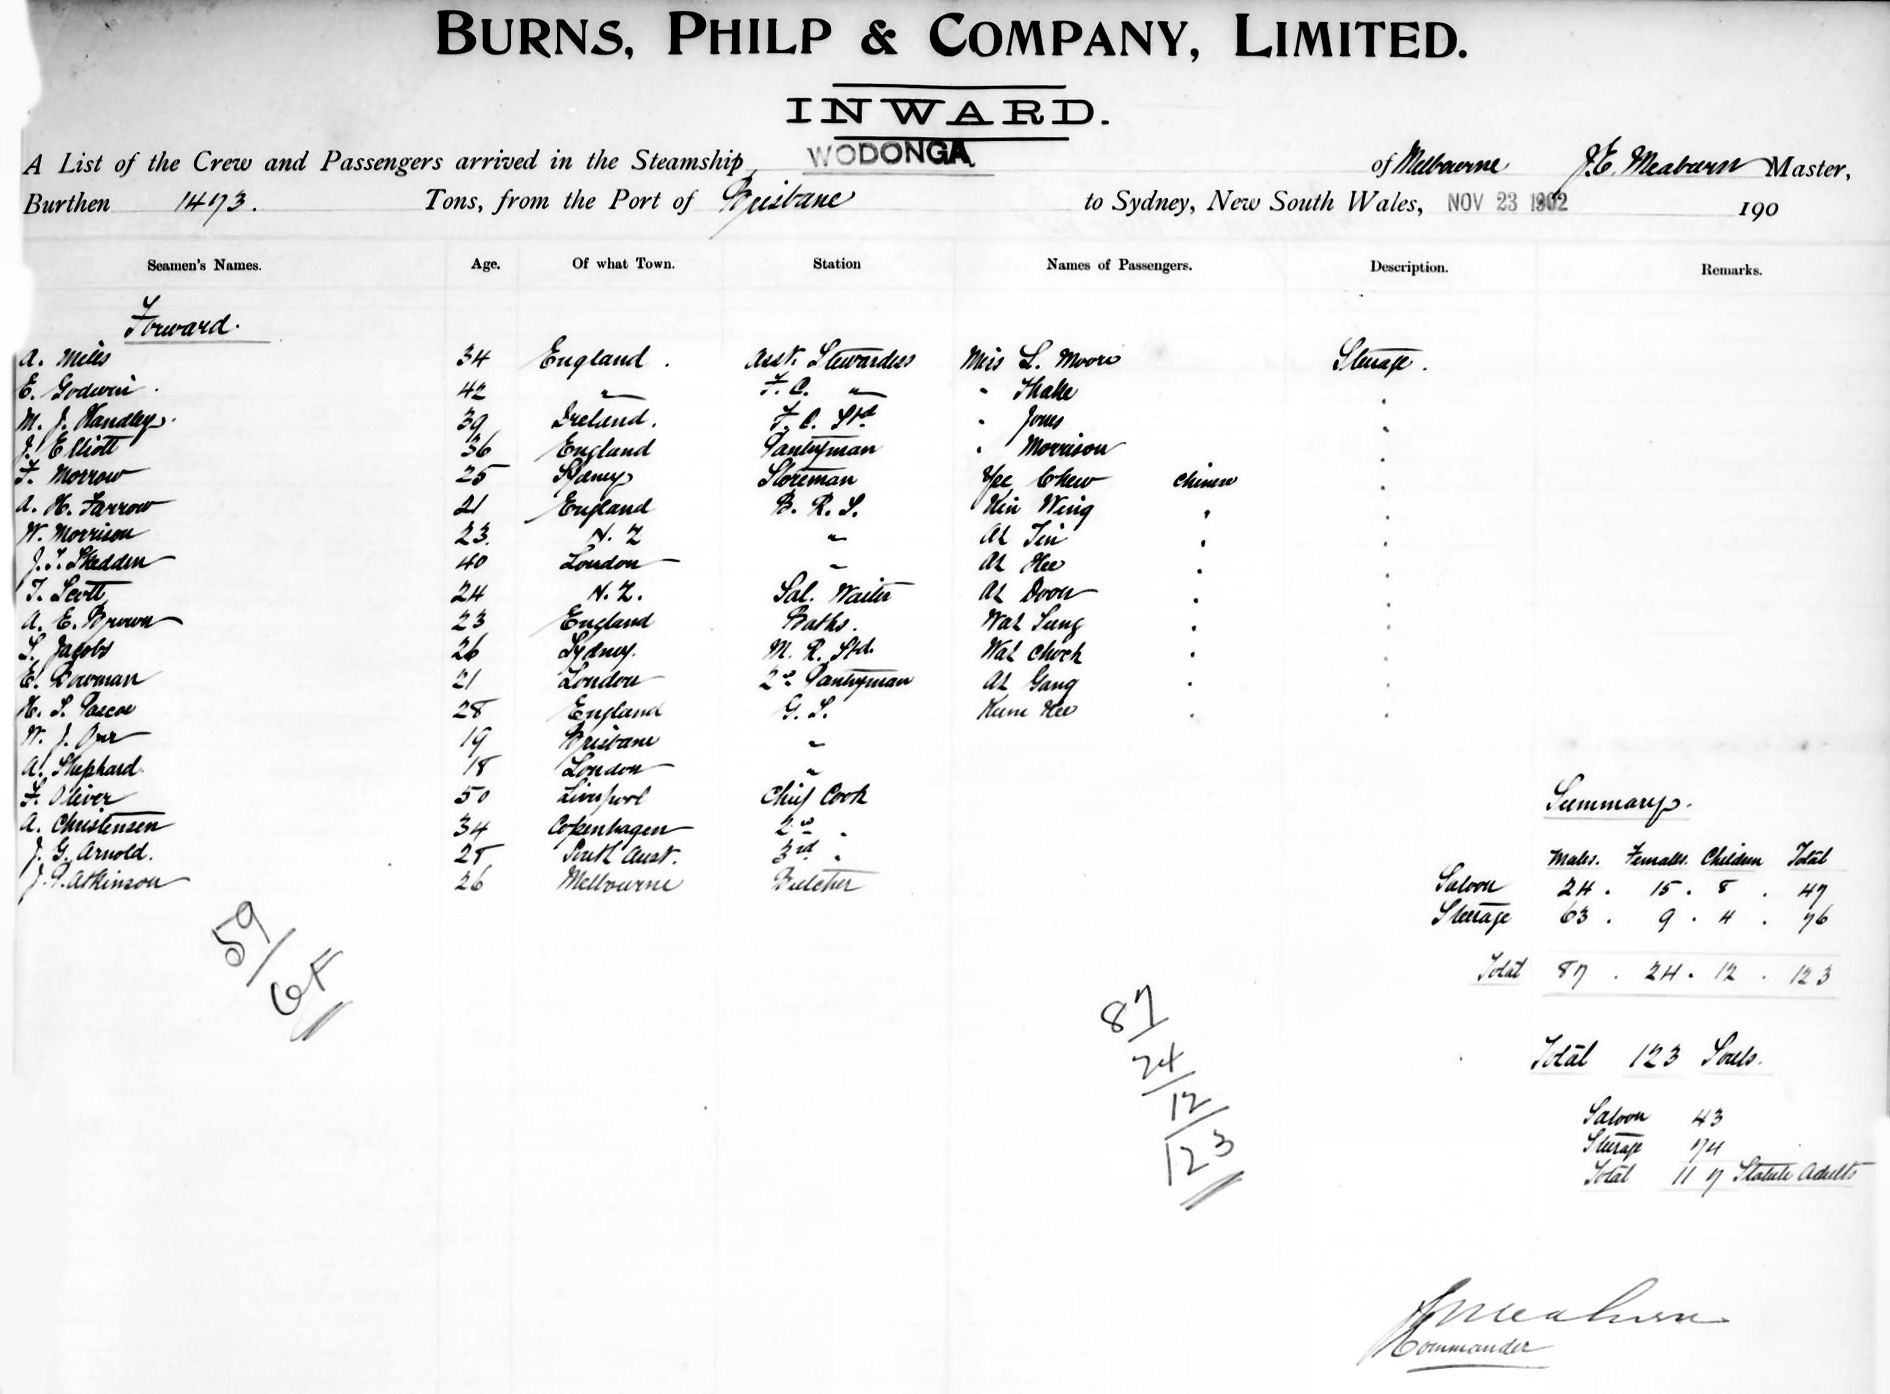 BURNS, PHILP & COMPANY, LIMITED.
INWARD.
A List of the Crew and Passengers arrived in the Steamship WODONGA of Melbourne J.E. Meaburn Master,
Burthen 1473. Tons, from the Port of Brisbane to Sydney, New South Wales, NOV 23 1902 190
Seamen's Names. Age. Of what Town. Station Names of Passengers. Description. Remarks.
Forward.
A. Miles 34 England. Asst. Stewardess Miss L. Moore Steerage.
E. Godwin. 42 " F. C. " " Thake "
M. J. Handley. 39 Ireland. F. C. Std. " Jones "
J. Elliott 36 England Pantryman " Morrison "
F. Morrow 25 Sydney Storeman Yee Chew Chinese "
A. H. Farrow 21 England B. R. S. Kin Wing " "
W. Morrison 23. N. Z " Ah Tin " "
J. T. Skedden 40 London " Ah Hee " "
T. Scott 24 N. Z. Sal. Waiter Ah Doon " "
A. E. Brown 23 England Baths. Wah Sung " "
S. Jacobs 26 Sydney. M. R. Std. Wah Chock " "
E. Bowman 21 London 2nd Pantryman Ah Gang " "
H. S. Pascoe 28 England G. S. Kum Hee " "
W. J. Orr 19 Brisbane "
A. Shephard. 18 London "
F. Oliver 50 Liverpool Chief Cook
A. Christensen 34 Copenhagen 2nd "
J. G. Arnold. 28 South Aust. 3rd "
J. P. Atkinson 26 Melbourne Butcher
59/
64
87/
24/
12/
123
Summary.
Males. Females. Children Total
Saloon 24. 15. 8. 47
Steerage 63. 9. 4. 76
Total 87. 24. 12. 123
Total 123 Souls.
Saloon 43
Steerage 74
Total 117 Statute Adults
J Meaburn
Commander